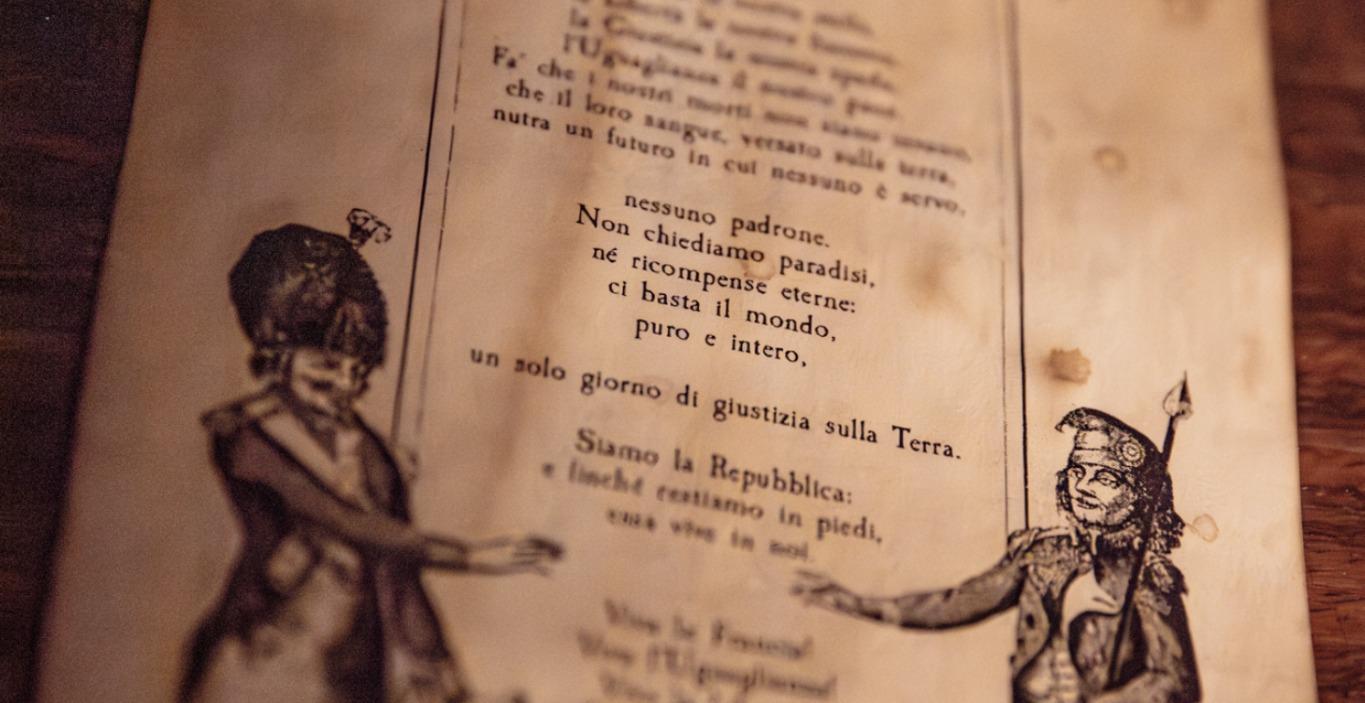 la Giustizia la nostra spada,
l'Uguaglianza il nostro pane.
Fa' che i nostri morti non siano
che il loro sangue, versato sulla terra,
nutra un futuro in cui nessuno è servo,
nessuno padrone.
Non chiediamo paradisi,
né ricompense eterne:
ci basta il mondo,
puro e intero,
un solo giorno di giustizia sulla Terra.
Siamo la Repubblica:
e finché restiamo in piedi,
essa vive in noi.
Viva la Francia!
Viva l'Uguaglianza!
Viva la